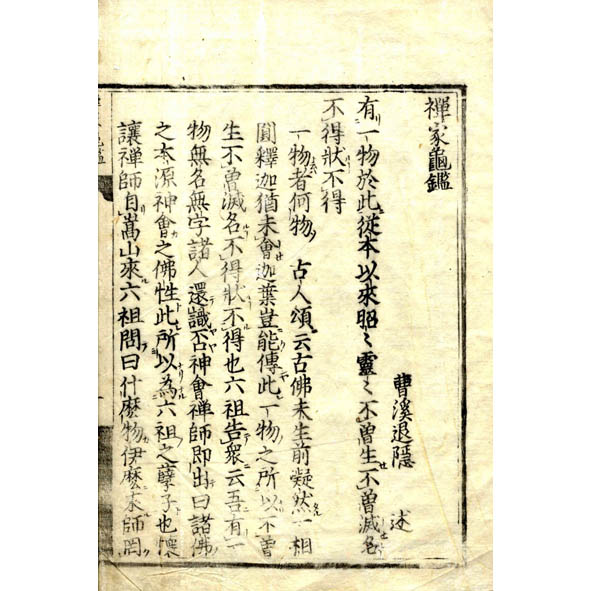 禪家龜鑑
曹溪退隱 述
有一物於此從本以來昭〻靈〻不曾生不曾滅名
不得狀不得
一物者何物 古人頌云古佛未生前凝然一相
圓釋迦猶未會迦葉豈能傳此一物之所以不曾
生不曾滅名不得狀不得也六祖告衆云吾有一
物無名無字諸人還識否神會禪師即出曰諸佛
之本源神會之佛性此所以為六祖之孽子也懷
讓禪師自嵩山來六祖問曰什麽物伊麽來師罔